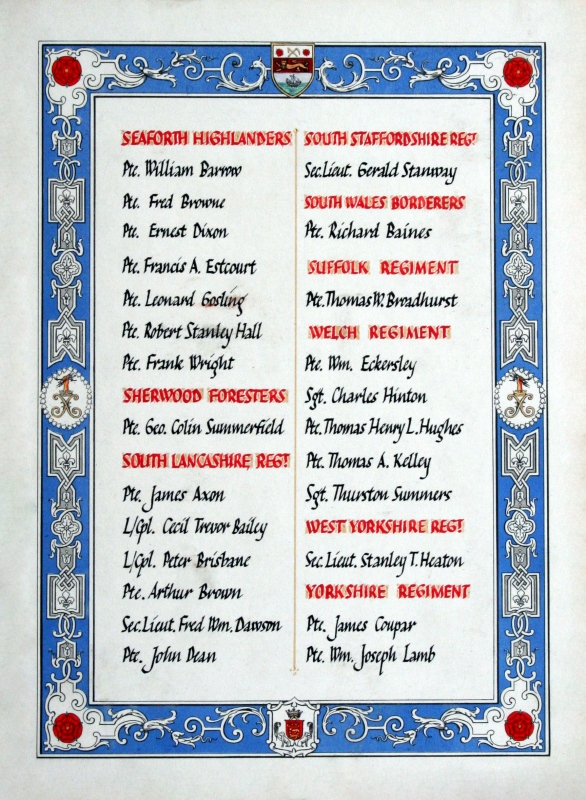 SEAFORTH HIGHLANDERS
Pte. William Barrow
Pte. Fred Browne
Pte. Ernest Dixon
Pte. Francis A. Estcourt
Pte. Leonard Gosling
Pte. Robert Stanley Hall
Pte. Frank Wright
SHERWOOD FORESTERS
Pte. Geo. Colin Summerfield
SOUTH LANCASHIRE REGT.
Pte. James Axon
L/Cpl. Cecil Trevor Bailey
L/Cpl. Peter Brisbane
Pte. Arthur Brown
Sec. Lieut. Fred Wm. Dawson
Pte. John Dean
SOUTH STAFFORDSHIRE REGT.
Sec. Lieut. Gerald Stanway
SOUTH WALES BORDERERS
Pte. Richard Baines
SUFFOLK REGIMENT
Pte. Thomas W. Broadhurst
WELCH REGIMENT
Pte. Wm. Eckersley
Sgt. Charles Hinton
Pte. Thomas Henry L. Hughes
Pte. Thomas A. Kelley
Sgt. Thurston Summers
WEST YORKSHIRE REGT.
Sec. Lieut. Stanley T. Heaton
YORKSHIRE REGIMENT
Pte. James Coupar
Pte. Wm. Joseph Lamb